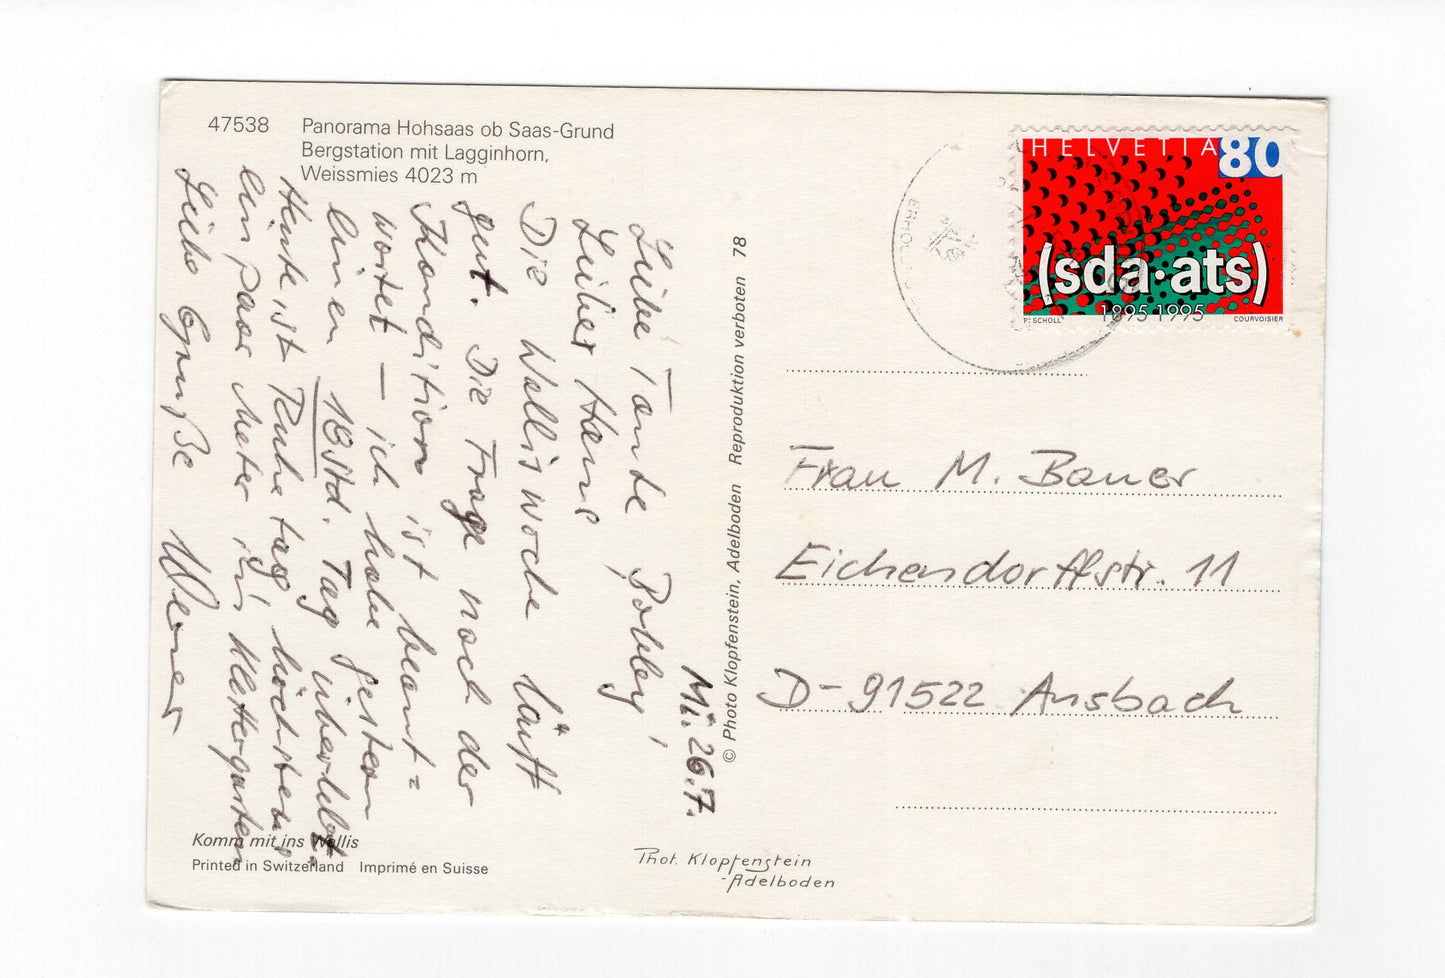 47538 Panorama Hohsaas ob Saas-Grund
Bergstation mit Lagginhorn,
Weissmies 4023 m
Mi. 26.7.
Liebe Tante Bobby,
Lieber Hans
Die Walliswoche läuft
gut. Die Frage nach der
Kondition ist beant=
wortet – ich habe gestern
einen 18 Std. Tag überlebt.
Heute ist Ruhetag, höchstens
ein paar Meter im Klettergarten
Liebe Grüße Werner
Komm mit ins Wallis
Printed in Switzerland Imprimé en Suisse
© Photo Klopfenstein, Adelboden Reproduktion verboten 78
Phot. Klopfenstein
-Adelboden
HELVETIA 80
(sda·ats)
1895 1995
P. SCHOLL COURVOISIER
Frau M. Bauer
Eichendorffstr. 11
D-91522 Ansbach